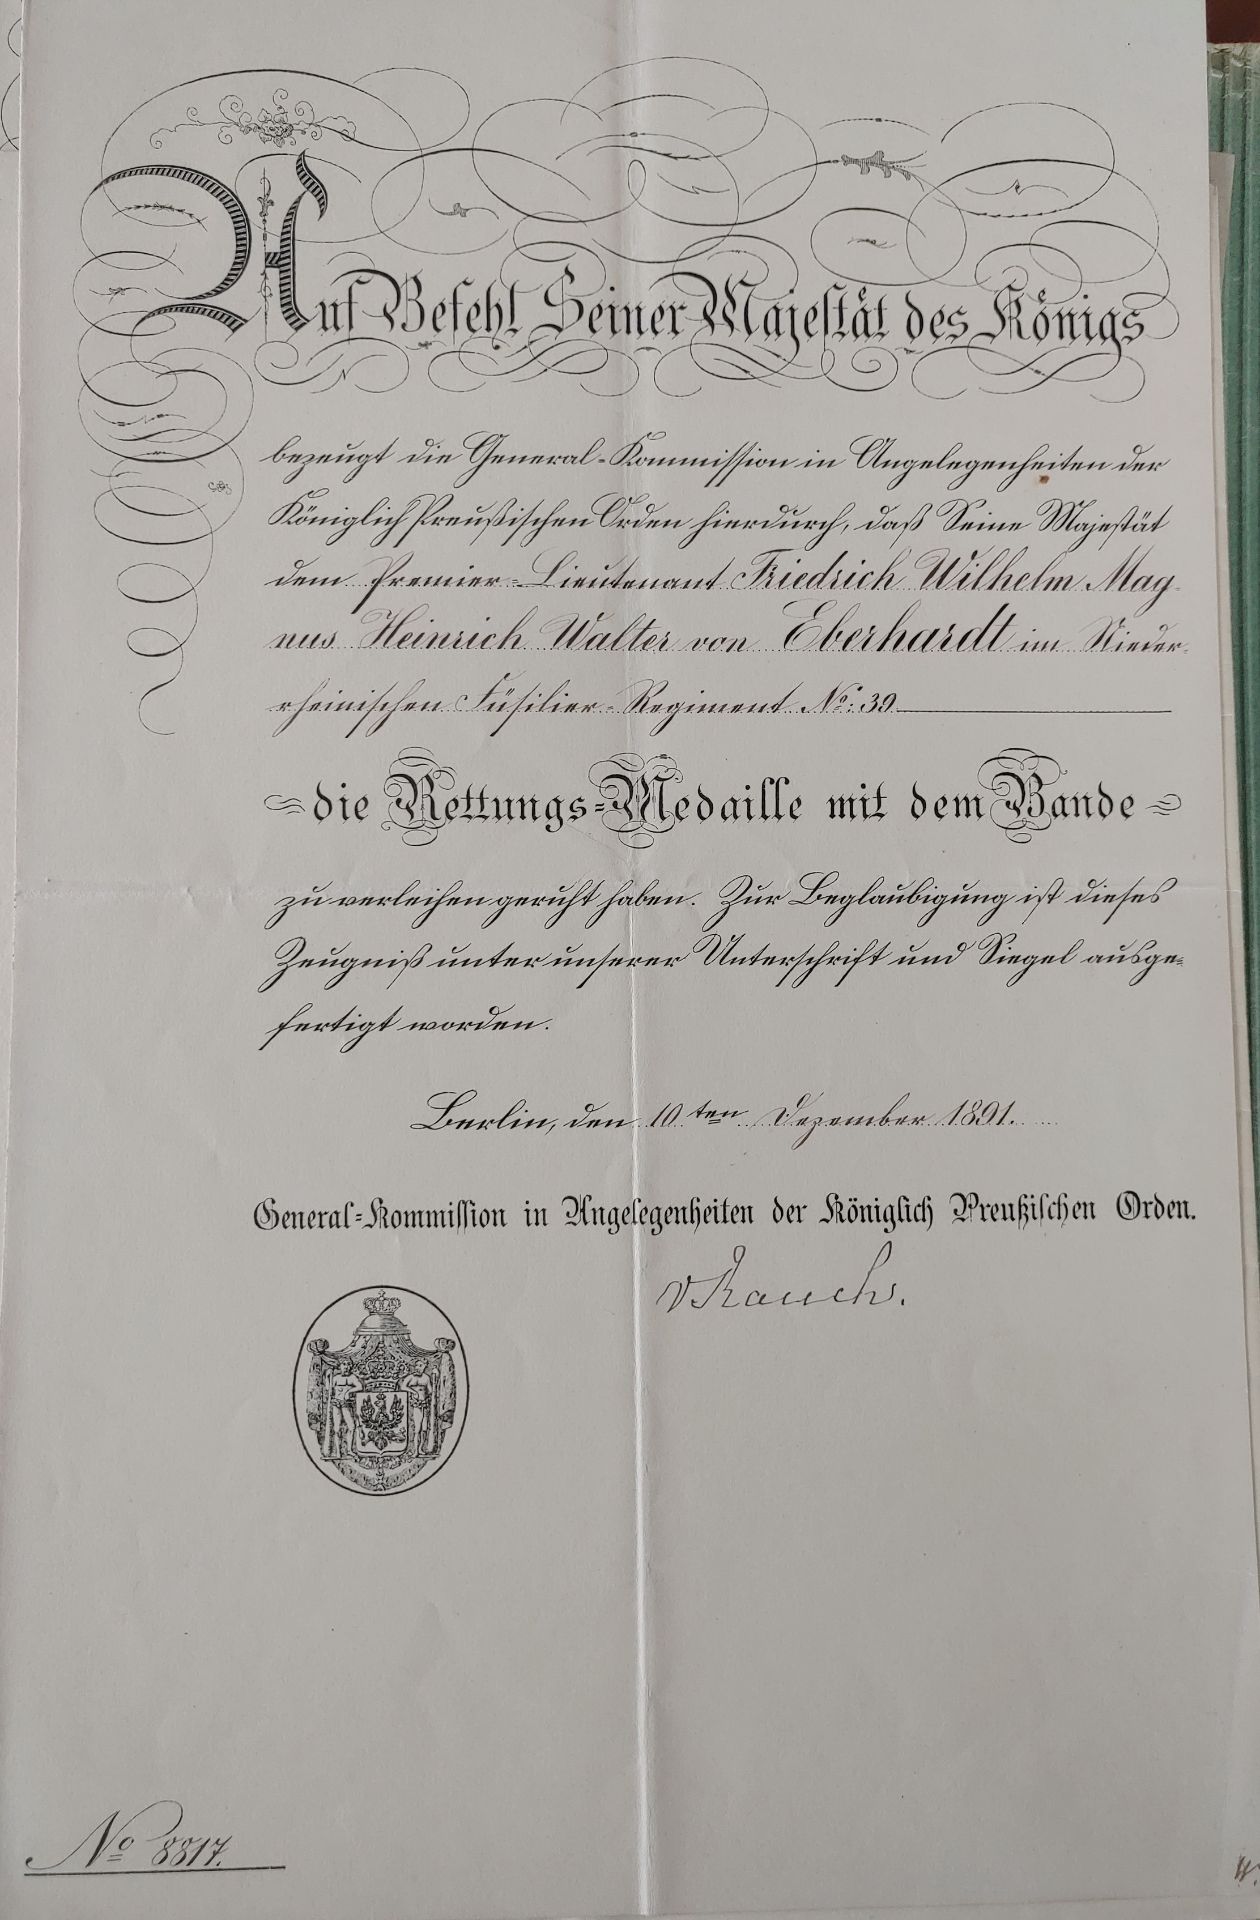 Auf Befehl Seiner Majestät des Königs
bezeugt die General-Kommission in Angelegenheiten der
Königlich Preußischen Orden hierdurch, daß Seine Majestät
dem Premier-Lieutenant Friedrich Wilhelm Mag-
nus Heinrich Walter von Eberhardt im Nieder-
rheinischen Füsilier-Regiment No: 39
die Rettungs-Medaille mit dem Bande
zu verleihen geruht haben. Zur Beglaubigung ist dieses
Zeugniß unter unserer Unterschrift und Siegel ausge-
fertigt worden.
Berlin, den 10ten Dezember 1891.
General-Kommission in Angelegenheiten der Königlich Preußischen Orden.
v Rauch.
No 8817.